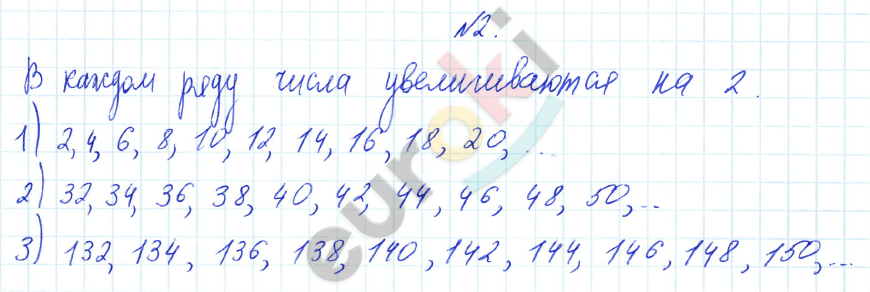 №2.
В каждом ряду числа увеличиваются на 2.
1) 2, 4, 6, 8, 10, 12, 14, 16, 18, 20, ...
2) 32, 34, 36, 38, 40, 42, 44, 46, 48, 50, ...
3) 132, 134, 136, 138, 140, 142, 144, 146, 148, 150, ...
euroki